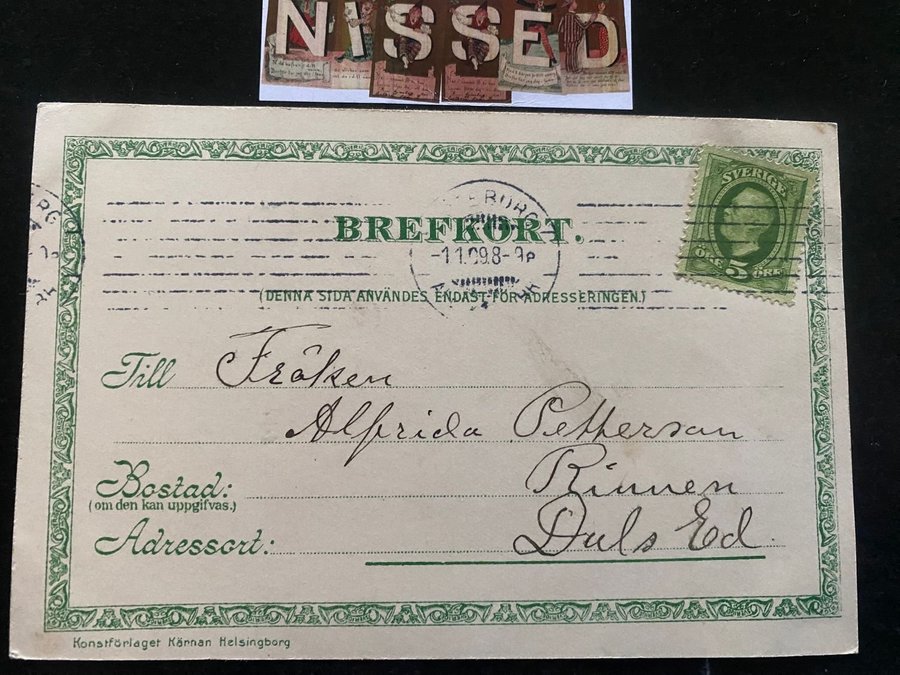 NISSED
BREFKORT.
-1.1.09 8-9P
(DENNA SIDA ANVÄNDES ENDAST FÖR ADRESSERINGEN.)
SVERIGE
5
ÖRE
Till Fröken
Alfrida Petterson
Bostad: Rinnen
(om den kan uppgifvas.)
Adressort: Dals Ed
Konstförlaget Kärnan Helsingborg